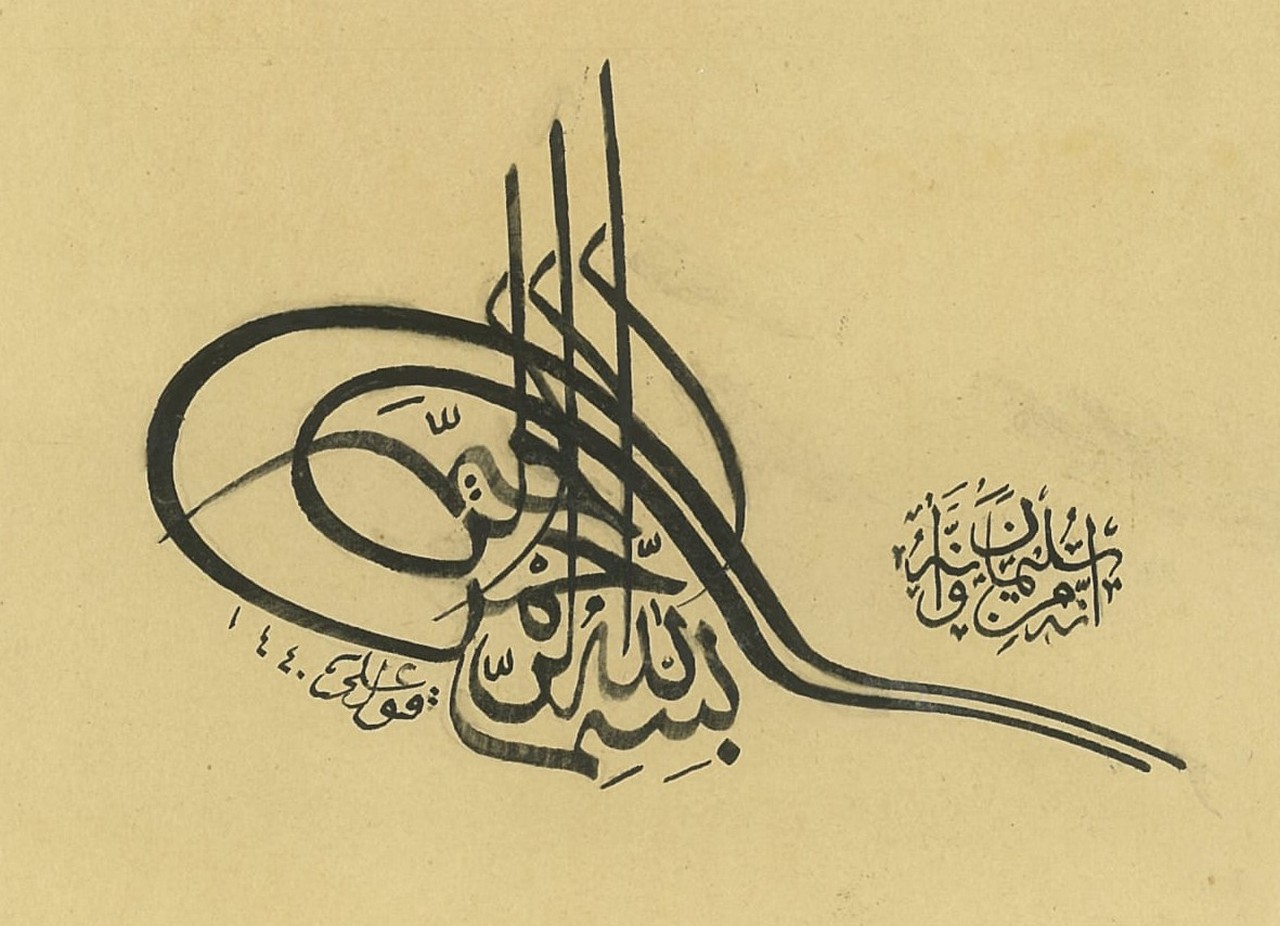 إنه من سليمان وإنه
بسم الله الرحمن الرحيم
١٤٤٠